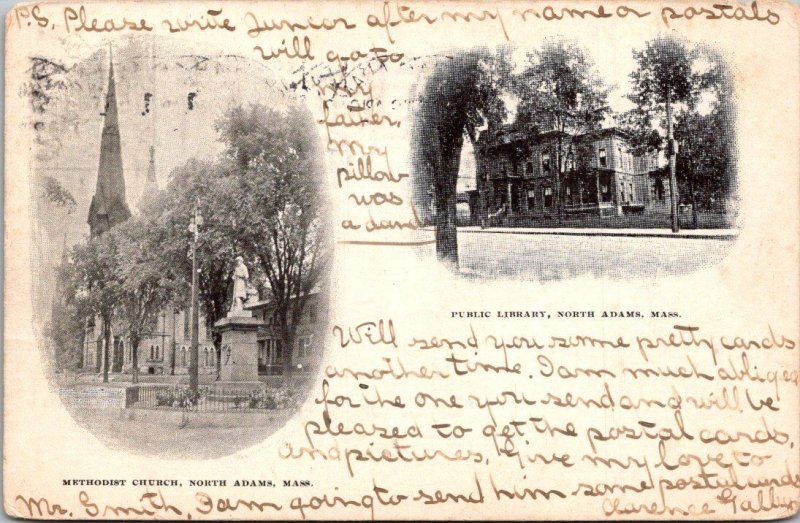 P.S. Please write Junior after my name or postals
will go to
my
father.
My
pillow
was
a dandy
PUBLIC LIBRARY, NORTH ADAMS, MASS.
Will send you some pretty cards
another time. I am much obliged
for the one you send and will be
pleased to get the postal cards,
and pictures. Give my love to
METHODIST CHURCH, NORTH ADAMS, MASS.
Mr. Smith, I am going to send him some postal cards
Clarence